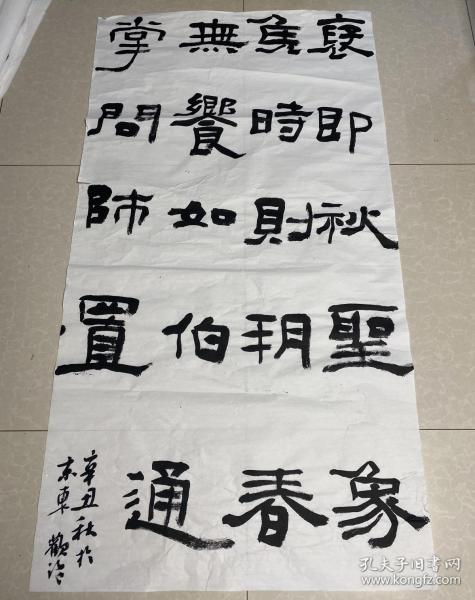 即秋聖象
時財玥春
無饗如伯通
掌問師置
辛丑秋於
京東
孔夫子旧书网
www.kongfz.com